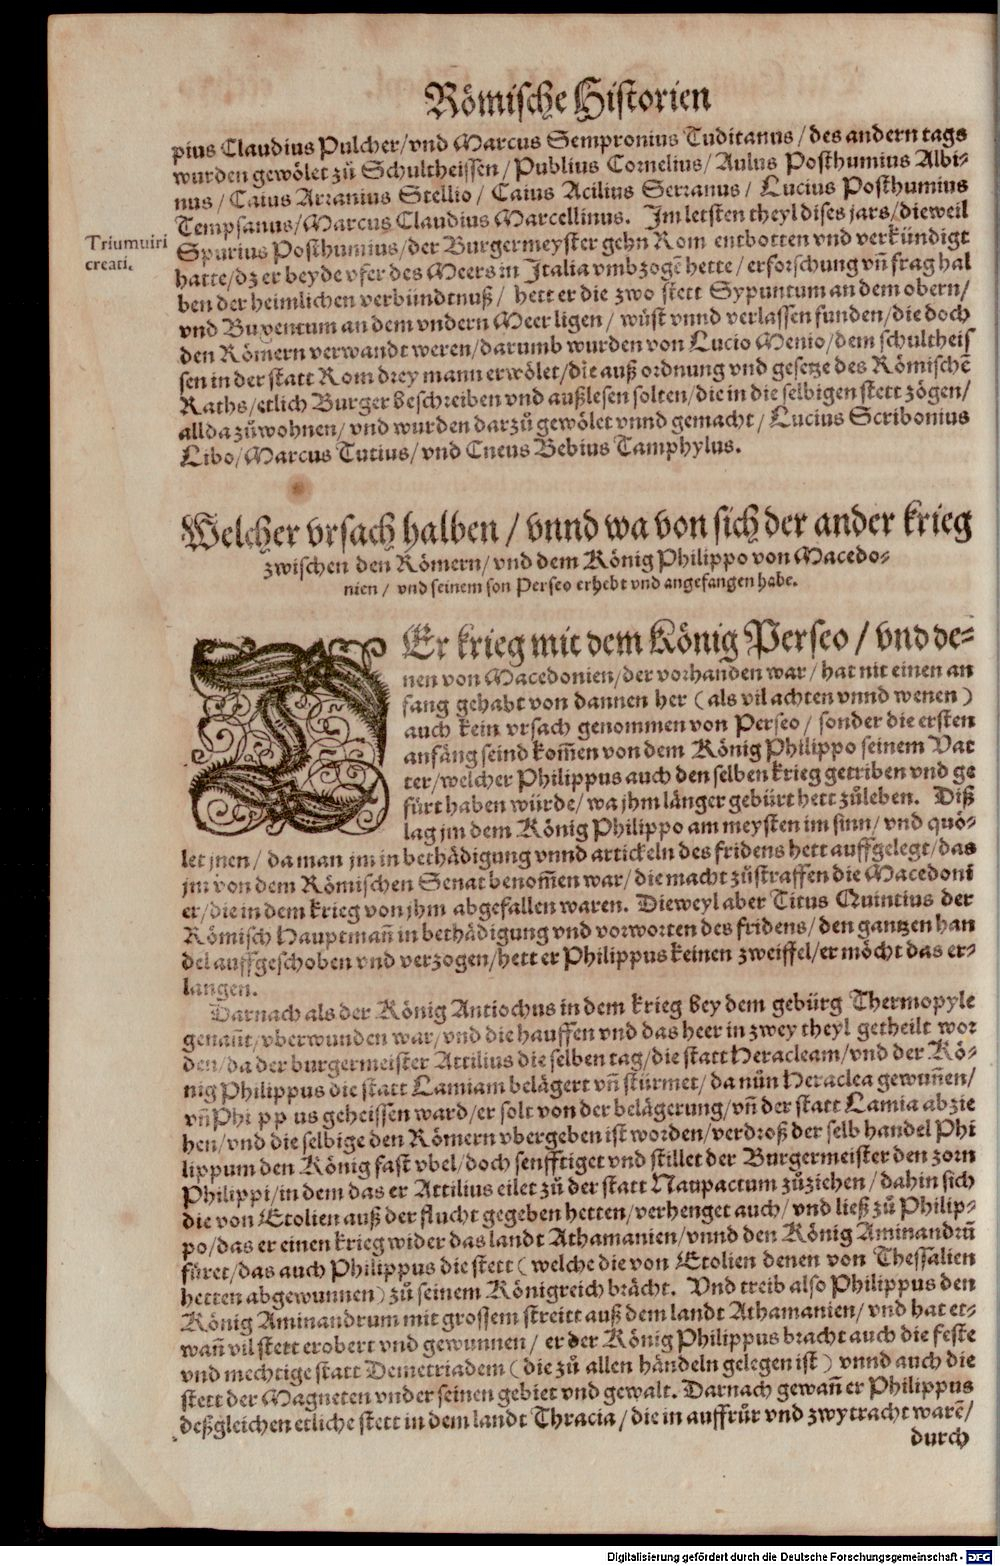 Römische Historien
pius Claudius Pulcher/vnd Marcus Sempronius Tuditanus/des andern tags
wurden gewölet zů Schultheissen/Publius Cornelius/Aulus Posthumius Albi-
nus/Caius Arranius Stellio/Caius Acilius Serranus/Lucius Posthumius
Tempsanus/Marcus Claudius Marcellinus. Im letsten theyl dises jars/dieweil
Triumuiri
creati.
Spurius Posthumius/der Burgermeyster gehn Rom entbotten vnd verkündigt
hatte/dz er beyde vfer des Meers in Italia vmbzogē hette/erforschung vñ frag hal
ben der heimlichen verbündtnuß/hett er die zwo stett Sypuntum an dem obern/
vnd Buxentum an dem vndern Meer ligen/wüst vnnd verlassen funden/die doch
den Römern verwandt weren/darumb wurden von Lucio Menio/dem schultheis
sen in der statt Rom drey mann erwölet/die auß ordnung vnd gesetze des Römischē
Raths/etlich Burger beschreiben vnd außlesen solten/die in die selbigen stett zögen/
allda zůwohnen/vnd wurden darzů gewölet vnnd gemacht/Lucius Scribonius
Libo/Marcus Tutius/vnd Cneus Bebius Tamphylus.
Welcher vrsach halben/vnnd wa von sich der ander krieg
zwischen den Römern/vnd dem König Philippo von Macedo-
nien/vnd seinem son Perseo erhebt vnd angefangen habe.
DEr krieg mit dem König Perseo/vnd de-
nen von Macedonien/der vorhanden war/hat nit einen an
fang gehabt von dannen her (als vil achten vnnd wenen)
auch kein vrsach genommen von Perseo/sonder die ersten
anfäng seind kom̄en von dem König Philippo seinem Vat
ter/welcher Philippus auch den selben krieg getriben vnd ge
fürt haben würde/wa jhm länger gebürt hett zůleben. Diß
lag jm dem König Philippo am meysten im sinn/vnd quö-
let jnen/da man jm in bethädigung vnnd artickeln des fridens hett auffgelegt/das
jm von dem Römischen Senat benom̄en war/die macht zůstraffen die Macedoni
er/die in dem krieg von jhm abgefallen waren. Dieweyl aber Titus Quintius der
Römisch Hauptmañ in bethädigung vnd vorworten des fridens/den gantzen han
del auffgeschoben vnd verzogen/hett er Philippus keinen zweiffel/er möcht das er-
langen.
Darnach als der König Antiochus in dem krieg bey dem gebürg Thermopyle
genañt/vberwunden war/vnd die hauffen vnd das heer in zwey theyl getheilt wor
den/da der burgermeister Attilius die selben tag/die statt Heracleam/vnd der Kö-
nig Philippus die statt Lamiam belägert vñ stürmet/da nůn Heraclea gewuñen/
vñ Phi pp us geheissen ward/er solt von der belägerung/vñ der statt Lamia abzie
hen/vnd die selbige den Römern vbergeben ist worden/verdroß der selb handel Phi
lippum den König fast vbel/doch senfftiget vnd stillet der Burgermeister den zorn
Philippi/in dem das er Attilius eilet zů der statt Naupactum zůziehen/dahin sich
die von Etolien auß der flucht gegeben hetten/verhenget auch/vnd ließ zů Philip-
po/das er einen krieg wider das landt Athamanien/vnnd den König Aminandrū
füret/das auch Philippus die stett (welche die von Etolien denen von Thessalien
hetten abgewunnen) zů seinem Königreich brächt. Vnd treib also Philippus den
König Aminandrum mit grossem streitt auß dem landt Athamanien/vnd hat et-
wañ vil stett erobert vnd gewunnen/er der König Philippus bracht auch die feste
vnd mechtige statt Demetriadem (die zů allen händeln gelegen ist) vnnd auch die
stett der Magneten vnder seinen gebiet vnd gewalt. Darnach gewañ er Philippus
deßgleichen etliche stett in dem landt Thracia/die in auffrůr vnd zwytracht warē/
durch
Digitalisierung gefördert durch die Deutsche Forschungsgemeinschaft - DFG